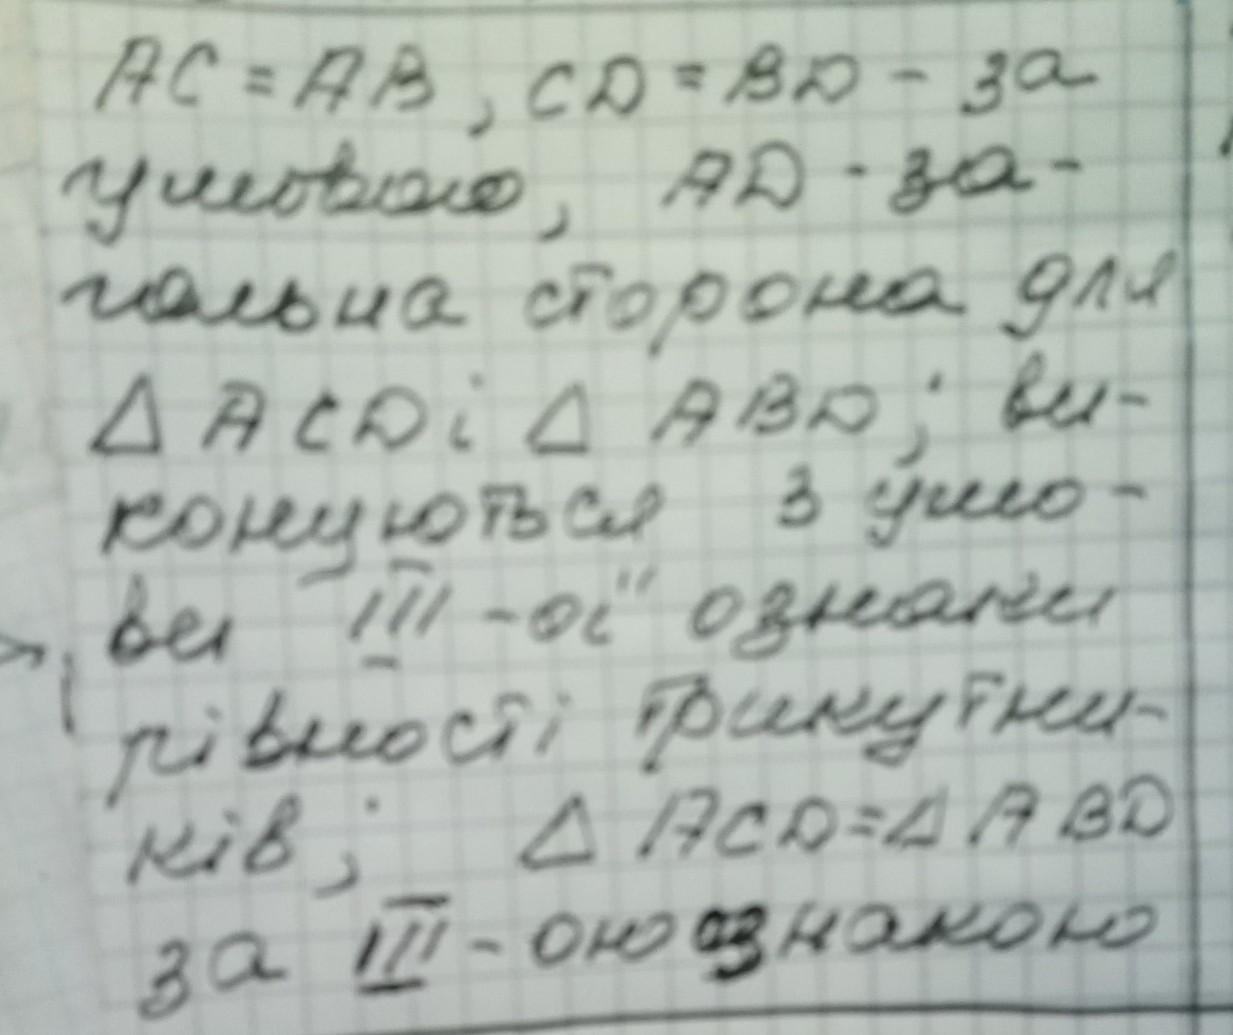 AC = AB, CD = BD - за
умовою, AD - за-
гальна сторона для
Δ ACD і Δ ABD; ви-
конуються 3 умо-
ви III-ої ознаки
рівності трикутни-
ків; Δ ACD = Δ ABD
за III-ою ознакою